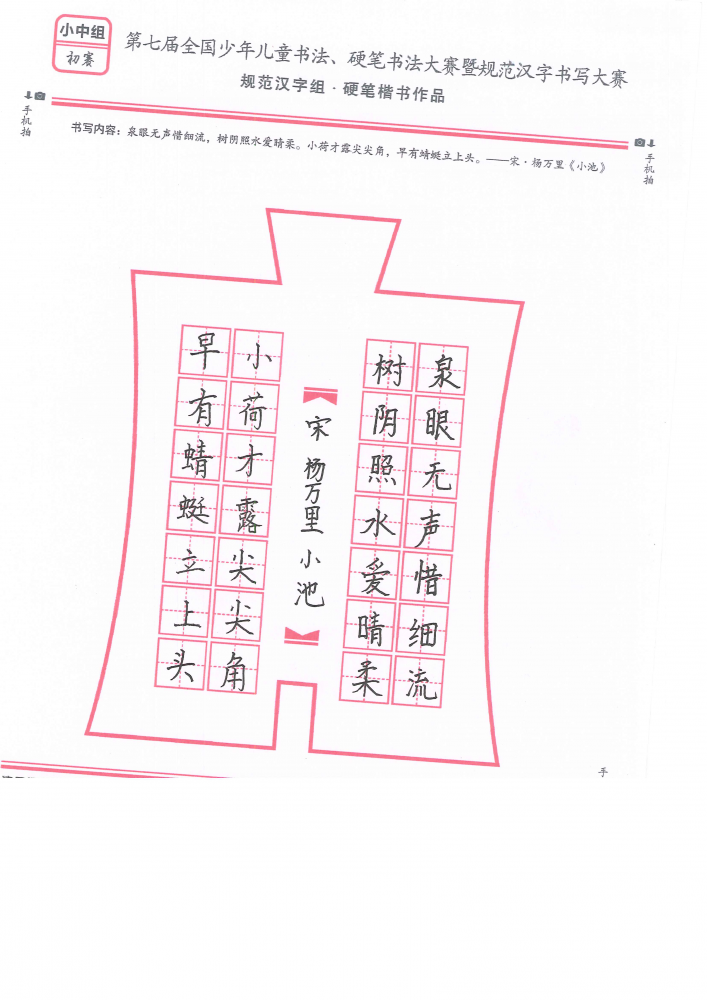 小中组
初赛
第七届全国少年儿童书法、硬笔书法大赛暨规范汉字书写大赛
规范汉字组·硬笔楷书作品
手机拍
手机拍
书写内容：泉眼无声惜细流，树阴照水爱晴柔。小荷才露尖尖角，早有蜻蜓立上头。——宋·杨万里《小池》
泉眼无声惜细流
树阴照水爱晴柔
宋 杨万里 小池
小荷才露尖尖角
早有蜻蜓立上头
手